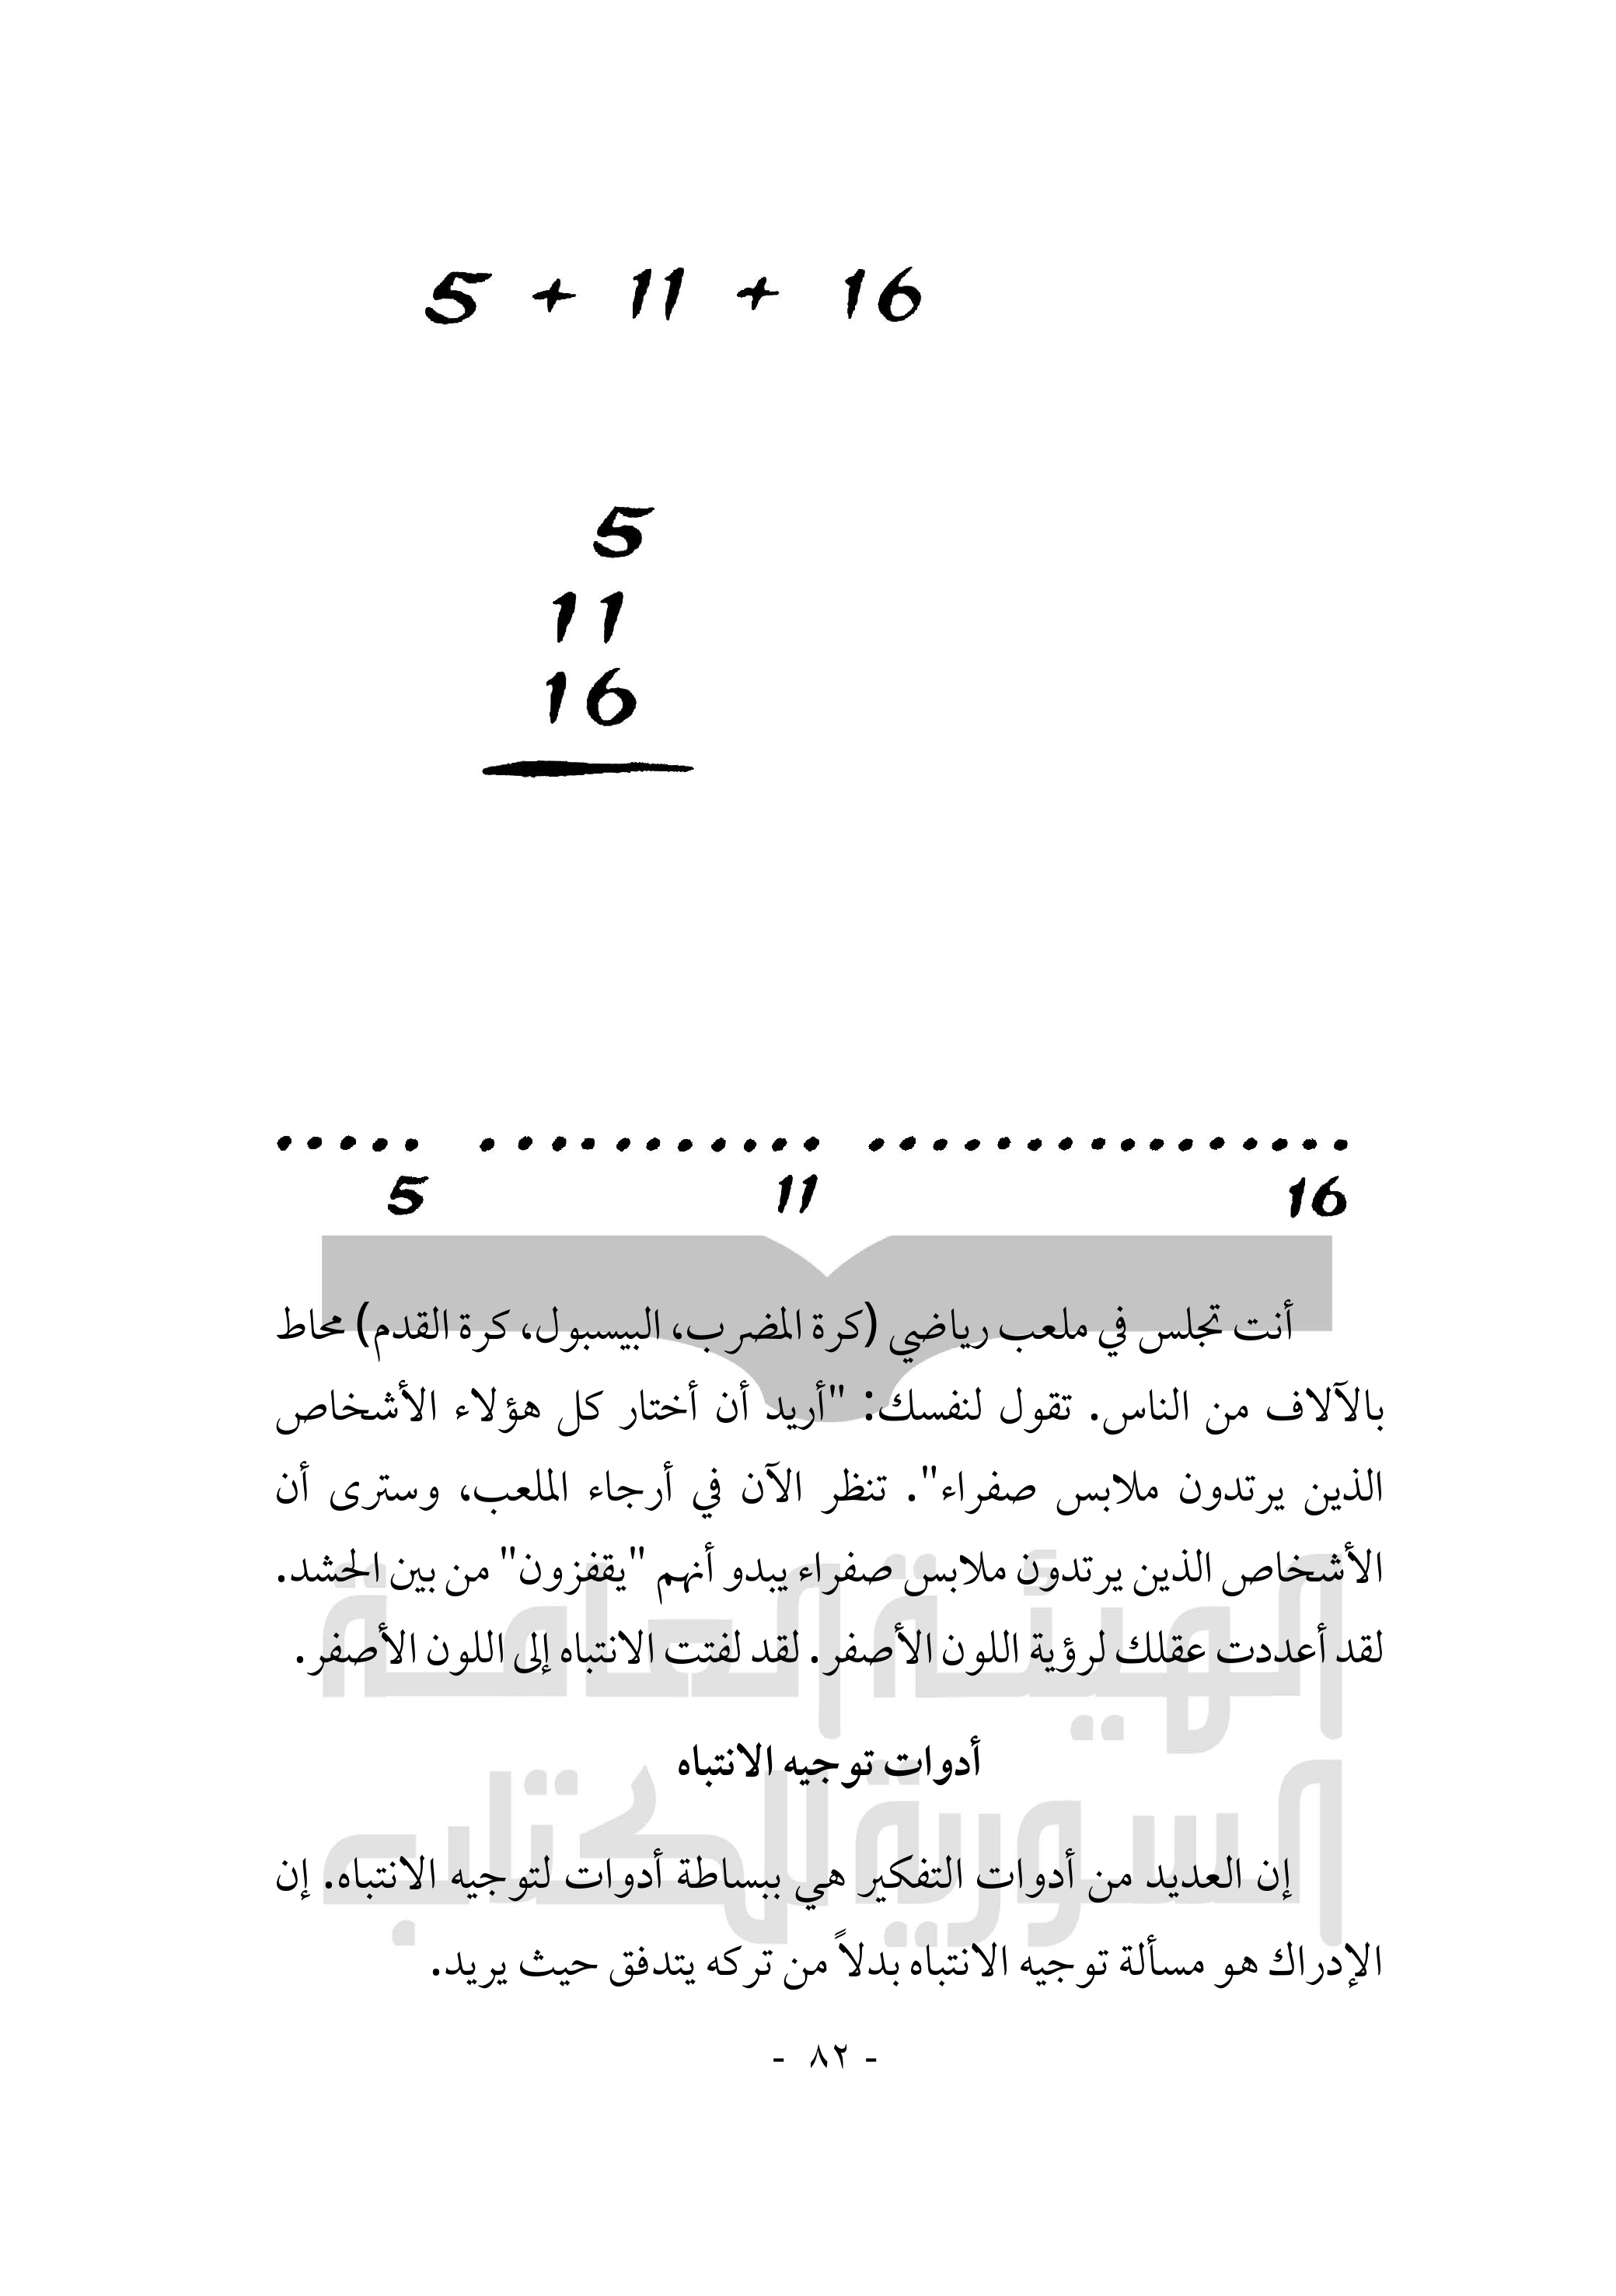 5 + 11 + 16
5
11
16
..... ........... ................
5 11 16
أنت تجلس في ملعب رياضي (كرة المضرب، البيسبول، كرة القدم) محاط
بالآلاف من الناس. تقول لنفسك: "أريد أن أختار كل هؤلاء الأشخاص
الذين يرتدون ملابس صفراء". تنظر الآن في أرجاء الملعب، وسترى أن
الأشخاص الذين يرتدون ملابس صفراء يبدو أنهم "يقفزون" من بين الحشد.
لقد أعددت عقلك لرؤية اللون الأصفر. لقد لفتت الانتباه إلى اللون الأصفر.
الهيئة العامة
أدوات توجيه الانتباه
السورية للكتاب
إن العديد من أدوات التفكير هي ببساطة أدوات لتوجيه الانتباه. إن
الإدراك هو مسألة توجيه الانتباه بدلاً من تركه يتدفق حيث يريد.
- ٨٢ -